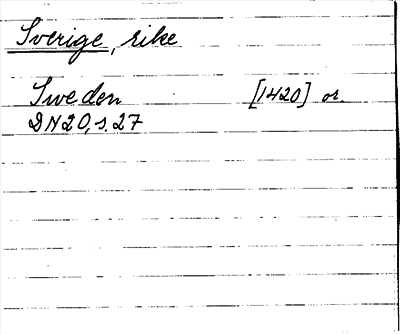 Sverige, rike
Sweden [1420] or.
DN20, s. 27